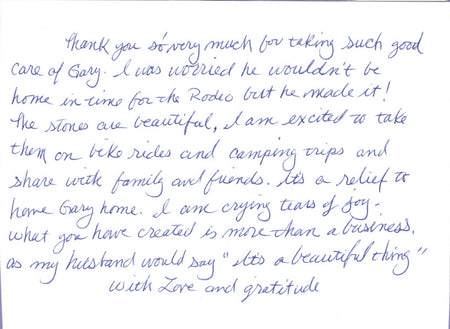 Thank you so very much for taking such good
care of Gary. I was worried he wouldn't be
home in time for the Rodeo but he made it!
The stones are beautiful, I am excited to take
them on bike rides and camping trips and
share with family and friends. It's a relief to
have Gary home. I am crying tears of joy.
What you have created is more than a business.
as my husband would say "It's a beautiful thing"
with Love and gratitude